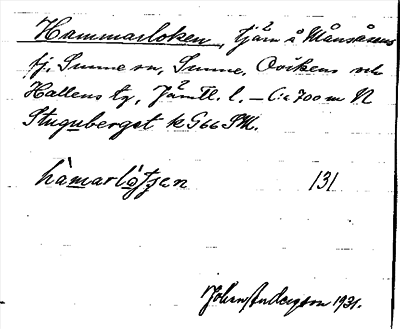 Hammarloken, tjärn å Månsåsens
fj. Sunne sn, Sunne, Ovikens och
Hallens tg, Jämtl. l. – C:a 700 m N
Stuguberget k G66 PM.
hàmarlo̩tʃen 131
Johan Anderzon 1931.